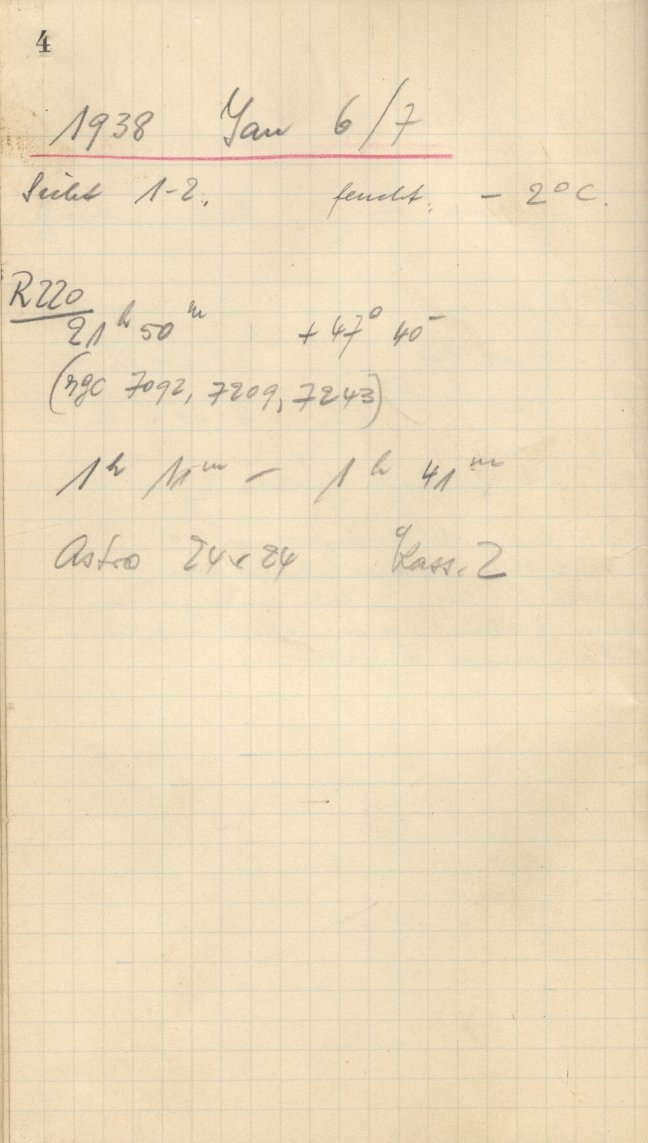 4
1938 Jan 6/7
Sicht 1-2. feucht. - 2° C.
R220
21ʰ 50ᵐ + 47° 40'
(ngc 7092, 7209, 7243)
1ʰ 11ᵐ - 1ʰ 41ᵐ
Astro 24 x 24 Kass. 2